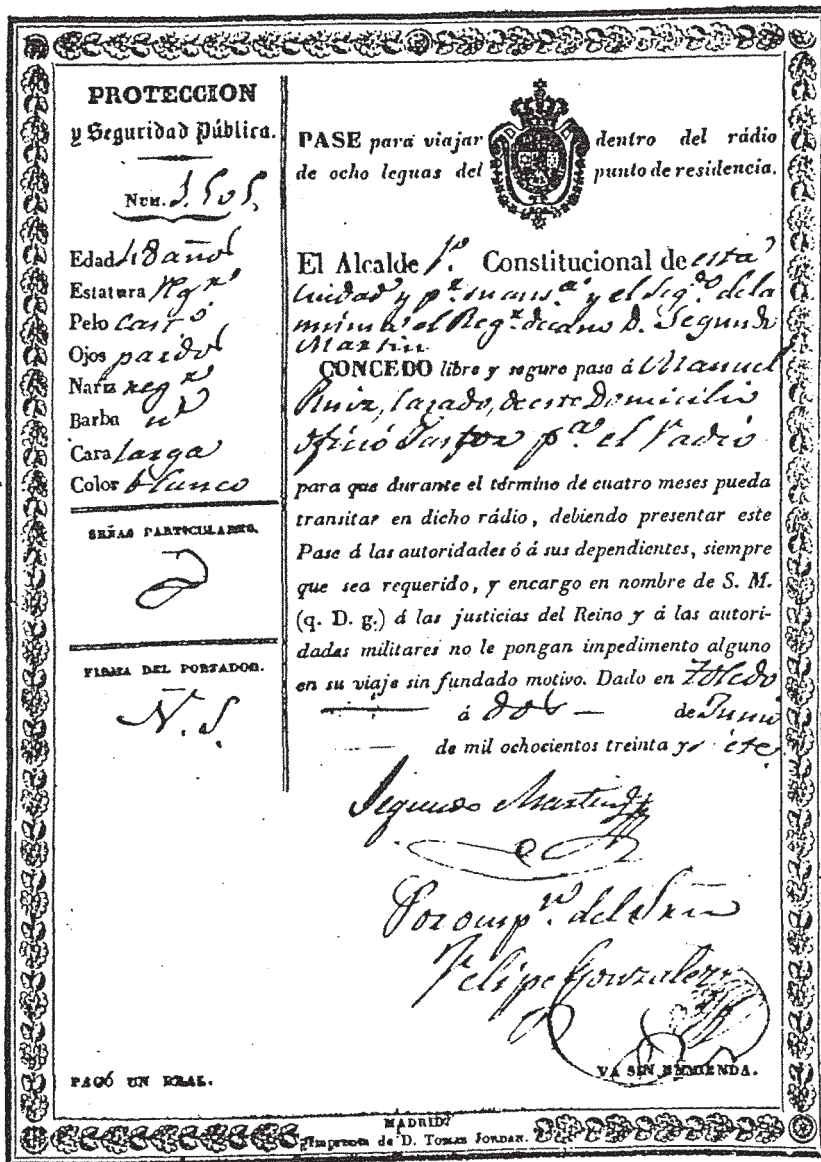 PROTECCION
y Seguridad Pública.
NUM. 1.505.
Edad 48 años
Estatura Rg.ʳ
Pelo Cast.ᵒ
Ojos pardos
Nariz reg.ʳ
Barba
Cara larga
Color blanco
SEÑAS PARTICULARES.
FIRMA DEL PORTADOR.
N. S.
PASE para viajar dentro del rádio
de ocho leguas del punto de residencia.
El Alcalde 1.º Constitucional de esta
Ciudad y p.ʳ su aus.ᵃ y el seg.ᵈᵒ de la
misma el Reg.ʳ decano D. Segundo
Martin.
CONCEDO libre y seguro pase á Manuel
Ruiz, Casado, de este Domicilio
oficio Pastor p.ᵃ el Radio
para que durante el término de cuatro meses pueda
transitar en dicho rádio, debiendo presentar este
Pase á las autoridades ó á sus dependientes, siempre
que sea requerido, y encargo en nombre de S. M.
(q. D. g.) á las justicias del Reino y á las autori-
dades militares no le pongan impedimento alguno
en su viaje sin fundado motivo. Dado en Toledo
á dos de Junio
de mil ochocientos treinta y siete
Segundo Martin
del Srio
Felipe Gonzalez
PAGÓ UN REAL.
VA SIN ENMIENDA.
MADRID:
Imprenta de D. TOMAS JORDAN.